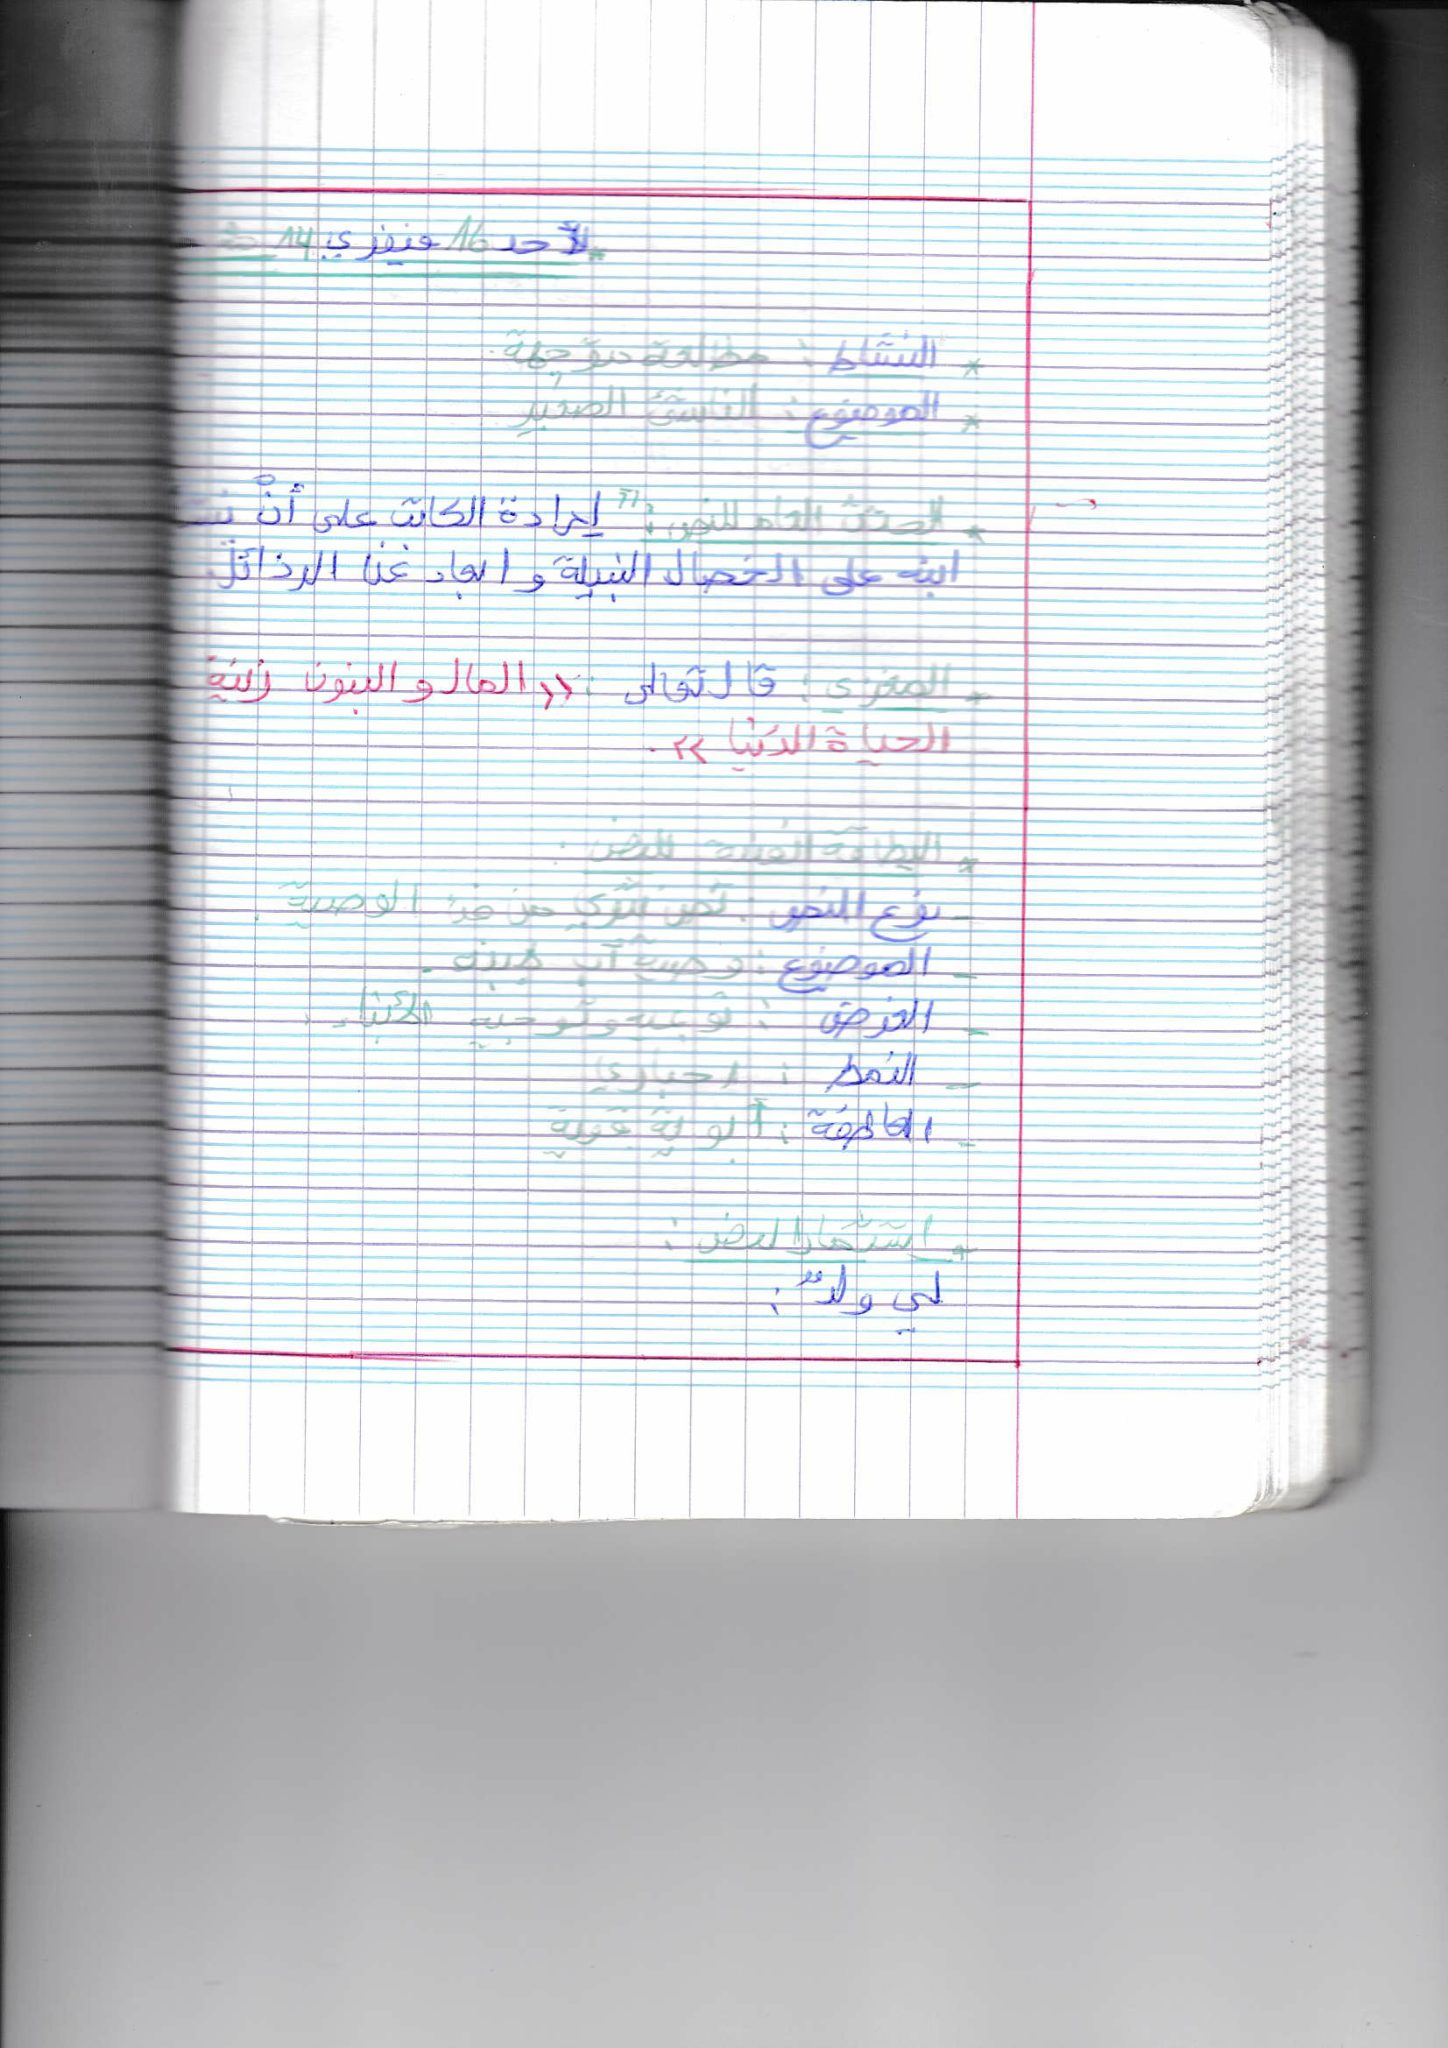 * الأحد 16 فيفري 14
* النشاط : مطالعة موجهة
* الموضوع : الناشئ الصغير
* الحدث العام للنص : " إرادة الكاتب على أنْ
ابنه على الخصال النبيلة و ابعاد عنا الرذائل
* المغزى : قال تعالى : << المال و البنون زينة
الحياة الدنيا >> .
* البطاقة الفنية للنص :
- نوع النص : نص نثري من فن الوصية .
- الموضوع : وصية أب لابنه .
- الغرض : توعية وتوجيه الأبناء .
- النمط : اخباري
- العاطفة : أبوية قوية
* استثمار النص :
لي ولدٌ :